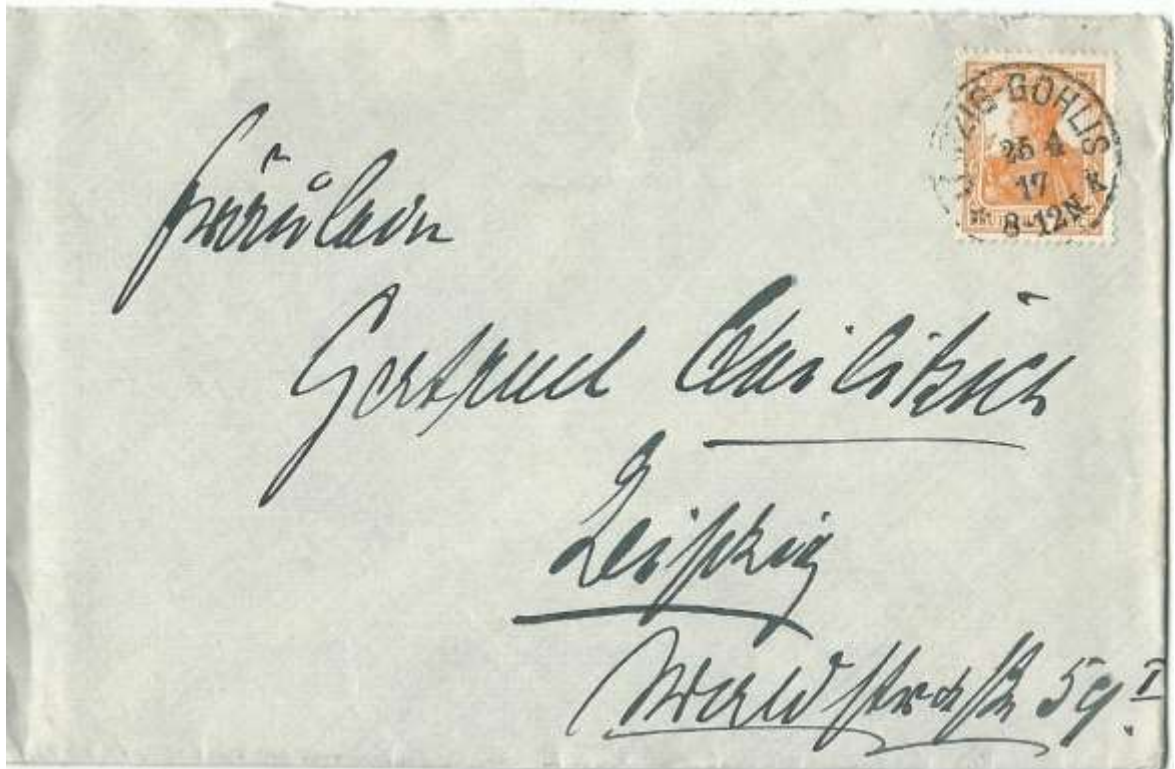 LEIPZIG-GOHLIS
25 4
17
8-12N.
Fräulein
Gertrud
Leipzig
Waldstraße 59 I.